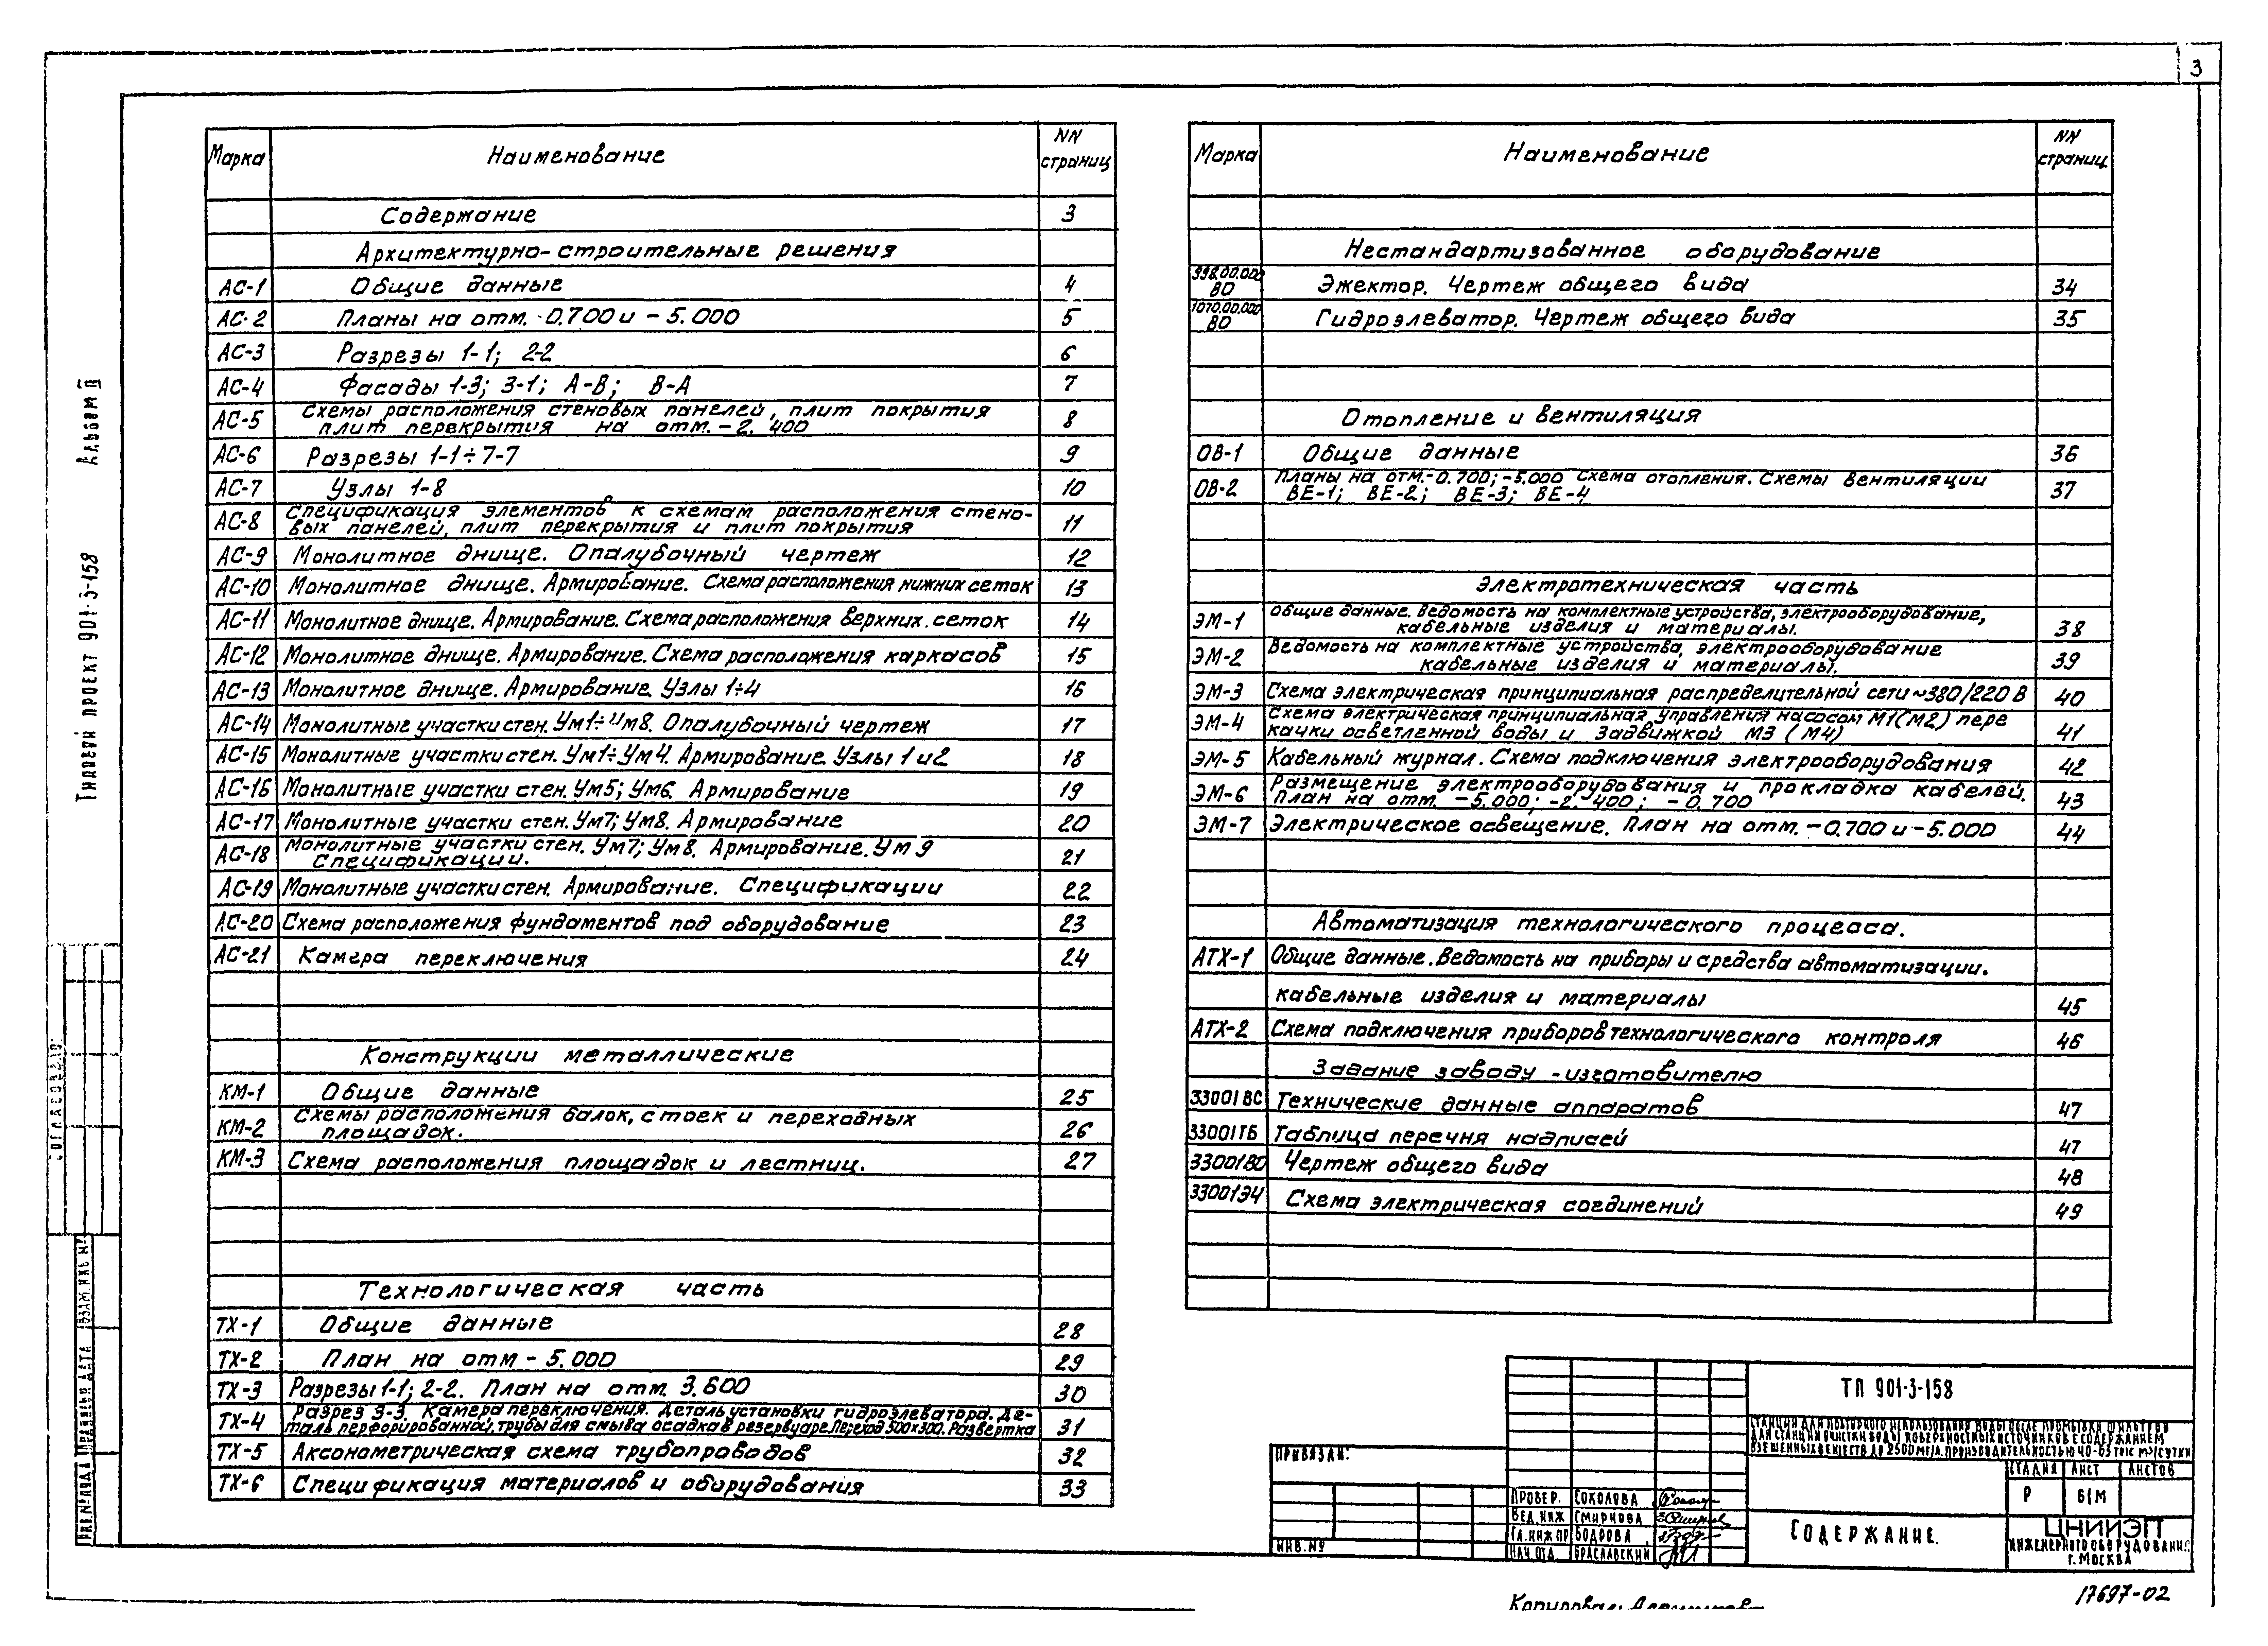 3
Альбом II
Типовой проект 901-3-158
Марка Наименование NN страниц
Содержание 3
Архитектурно-строительные решения
АС-1 Общие данные 4
АС-2 Планы на отм. -0.700 и -5.000 5
АС-3 Разрезы 1-1; 2-2 6
АС-4 Фасады 1-3; 3-1; А-В; В-А 7
АС-5 Схемы расположения стеновых панелей, плит покрытия
плит перекрытия на отм. -2.400 8
АС-6 Разрезы 1-1÷7-7 9
АС-7 Узлы 1-8 10
АС-8 Спецификация элементов к схемам расположения стено-
вых панелей, плит перекрытия и плит покрытия 11
АС-9 Монолитное днище. Опалубочный чертеж 12
АС-10 Монолитное днище. Армирование. Схема расположения нижних сеток 13
АС-11 Монолитное днище. Армирование. Схема расположения верхних сеток 14
АС-12 Монолитное днище. Армирование. Схема расположения каркасов 15
АС-13 Монолитное днище. Армирование. Узлы 1÷4 16
АС-14 Монолитные участки стен. Ум1÷Ум8. Опалубочный чертеж 17
АС-15 Монолитные участки стен. Ум1÷Ум4. Армирование. Узлы 1 и 2 18
АС-16 Монолитные участки стен. Ум5; Ум6. Армирование 19
АС-17 Монолитные участки стен. Ум7; Ум8. Армирование 20
АС-18 Монолитные участки стен. Ум7; Ум8. Армирование. Ум9
Спецификации. 21
АС-19 Монолитные участки стен. Армирование. Спецификации 22
АС-20 Схема расположения фундаментов под оборудование 23
АС-21 Камера переключения 24
Конструкции металлические
КМ-1 Общие данные 25
КМ-2 Схемы расположения балок, стоек и переходных
площадок. 26
КМ-3 Схема расположения площадок и лестниц. 27
Технологическая часть
ТХ-1 Общие данные 28
ТХ-2 План на отм -5.000 29
ТХ-3 Разрезы 1-1; 2-2. План на отм. 3.600 30
ТХ-4 Разрез 3-3. Камера переключения. Деталь установки гидроэлеватора. Де-
таль перфорированной, трубы для смыва осадка в резервуаре. Переход 500х300. Развертка 31
ТХ-5 Аксонометрическая схема трубопроводов 32
ТХ-6 Спецификация материалов и оборудования 33
Марка Наименование NN страниц
Нестандартизованное оборудование
998.00.000 ВО Эжектор. Чертеж общего вида 34
1070.00.000 ВО Гидроэлеватор. Чертеж общего вида 35
Отопление и вентиляция
ОВ-1 Общие данные 36
ОВ-2 Планы на отм.-0.700; -5.000 Схема отопления. Схемы вентиляции
ВЕ-1; ВЕ-2; ВЕ-3; ВЕ-4 37
Электротехническая часть
ЭМ-1 Общие данные. Ведомость на комплектные устройства, электрооборудование,
кабельные изделия и материалы. 38
ЭМ-2 Ведомость на комплектные устройства, электрооборудование
кабельные изделия и материалы. 39
ЭМ-3 Схема электрическая принципиальная распределительной сети ~380/220 В 40
ЭМ-4 Схема электрическая принципиальная управления насосом М1(М2) пере
качки осветленной воды и задвижкой М3 (М4) 41
ЭМ-5 Кабельный журнал. Схема подключения электрооборудования 42
ЭМ-6 Размещение электрооборудования и прокладка кабелей.
План на отм. -5.000; -2.400; -0.700 43
ЭМ-7 Электрическое освещение. План на отм. -0.700 и -5.000 44
Автоматизация технологического процесса.
АТХ-1 Общие данные. Ведомость на приборы и средства автоматизации.
кабельные изделия и материалы 45
АТХ-2 Схема подключения приборов технологического контроля 46
Задание заводу-изготовителю
33001ВС Технические данные аппаратов 47
33001ТБ Таблица перечня надписей 47
33001ВО Чертеж общего вида 48
33001Э4 Схема электрическая соединений 49
Согласовано
Взам. инв. №
Подпись и дата
Инв. № подл
Привязан:
Инв. №
Провер. Соколова
Вед. инж Смирнова
Гл. инж пр Бодрова
Нач. отд. Браславский
ТП 901-3-158
Станции для повторного использования воды после промывки фильтров
для станции очистки воды поверхностных источников с содержанием
взвешенных веществ до 2500 мг/л. производительностью 40-63 тыс м³/сутки
Стадия Лист Листов
Р 61М
Содержание.
ЦНИИЭП
инженерного оборудования
г. Москва
17697-02
Копировал: